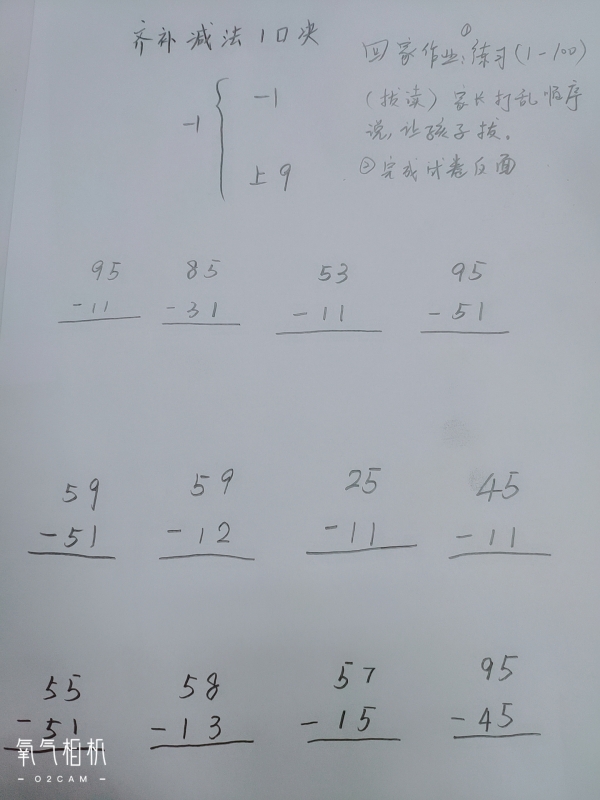 齐补减法1口决
-1 { -1
上9
回家作业:①练习(1-100)
(拔读)家长打乱顺序
说,让孩子拔。
②完成试卷反面
95 85 53 95
-11 -31 -11 -51
59 59 25 45
-51 -12 -11 -11
55 58 57 95
-51 -13 -15 -45
氧气相机
- O2CAM -